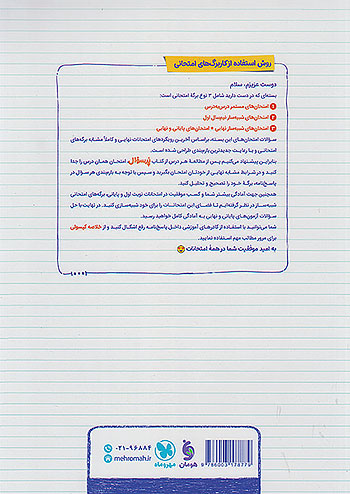 روش استفاده از کاربرگ‌های امتحانی
دوست عزیزم، سلام
بسته‌ای که در دست دارید شامل ۳ نوع برگهٔ امتحانی است:
۱ امتحان‌های مستمر درس‌به‌درس
۲ امتحان‌های شبه‌ساز نیم‌سال اول
۳ امتحان‌های شبه‌ساز نهایی + امتحان‌های پایانی و نهایی
سؤالات امتحان‌های این بسته، براساس آخرین رویکردهای امتحانات نهایی و کاملاً مشابه برگه‌های
امتحانی و با رعایت جدیدترین بارم‌بندی طراحی شده است.
بنابراین پیشنهاد می‌کنیم پس از مطالعهٔ هر درس از کتاب پُرسؤال، امتحان همان درس را جدا
کنید و در شرایط مشابه نهایی از خودتان امتحان بگیرید و سپس با توجه به بارم‌بندی هر سؤال در
پاسخ‌نامه، برگهٔ خود را تصحیح و تحلیل کنید.
همچنین جهت آمادگی بیشتر شما و کسب موفقیت در امتحانات نوبت اول و پایانی، برگه‌های امتحانی
شبه‌ساز در نظر گرفته‌ایم تا فضای این امتحانات را برای خود شبیه‌سازی کنید. در نهایت با حل
سؤالات آزمون‌های پایانی و نهایی به آمادگی کامل خواهید رسید.
شما می‌توانید با استفاده از کادرهای آموزشی داخل پاسخ‌نامه رفع اشکال کنید و از خلاصه کپسولی
برای مرور مطالب مهم استفاده نمایید.
به امید موفقیت شما در همهٔ امتحانات
۰۲۱-۹۶۸۸۴
mehromah.ir
مهروماه
هومان
9 786003 178779